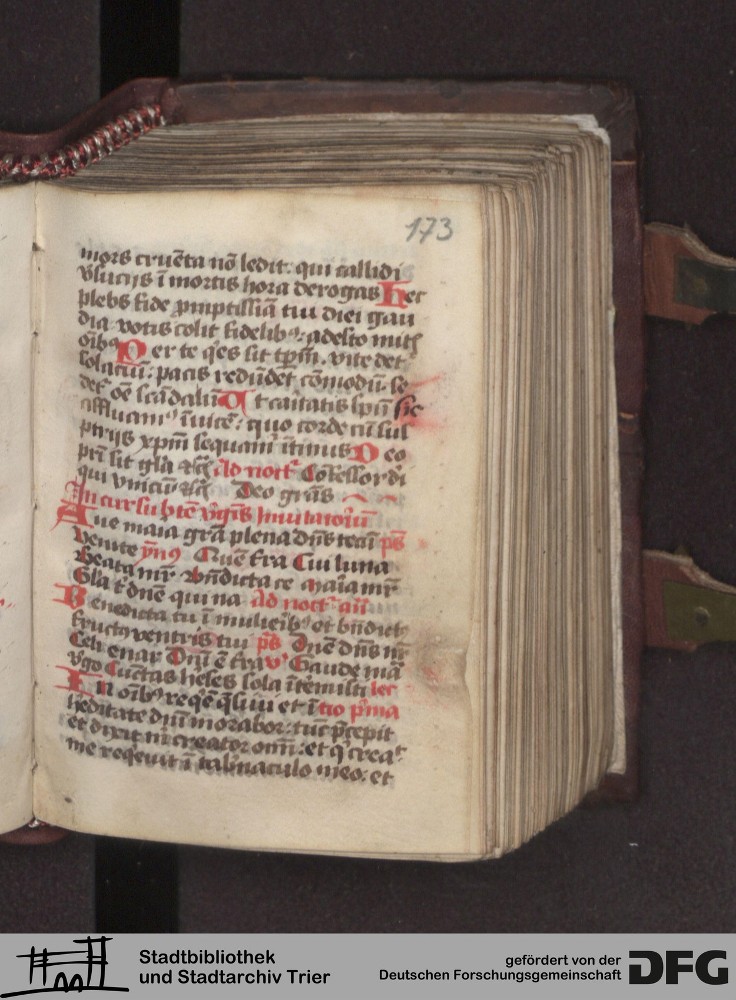 173
mors cruēta nō ledit: qui callidi
vlucijs ī mortis hora derogas Hec
plebs fide ꝓmptissiā tui diei gau
dia votis colit fidelibꝰ: adesto mitis
oībꝰ Per te qͥes sit tp̄m. vite det
solaciū: pacis redūdet cōmodū. se
det oē scādalū Et caritatis sp̄u sic
affluamꝰ īuicē: quo corde cū sul
ptrijs xp̄m sequamꝰ ītimus Deo
pr̄i sit gl̄a Ad noctꝰ Cōfessor di
qui vnicū Deo gr̄as
In cursu btē vgīs Inuitatoriū
Aue maīa gr̄a plena dn̄s tecū ps̄
Venite ymꝰ Quē t̄ra Cui luna
Beata mr̄ bn̄dicta te maīa mr̄
Gl̄a t̄ dn̄e qui na Ad noctꝰ an̄
Benedicta tu ī mulieribꝰ et bn̄dictꝰ
fructꝰ ventris tui ps̄ Dn̄e dn̄s nr̄
Celi enar Dn̄i ē t̄ra v̓ Gaude maā
v̓go Cūctas heses sola ītemisti lec
In oībꝰ reqͥē qͥsiui et ī tio pͥma
heditate dn̄i morabor: tūc p̄cepit
et dixit mͥ creator om̄: et qͥ crea
me reqͥeuit ī tab̓naculo meo: et
Stadtbibliothek
und Stadtarchiv Trier
gefördert von der
Deutschen Forschungsgemeinschaft
DFG